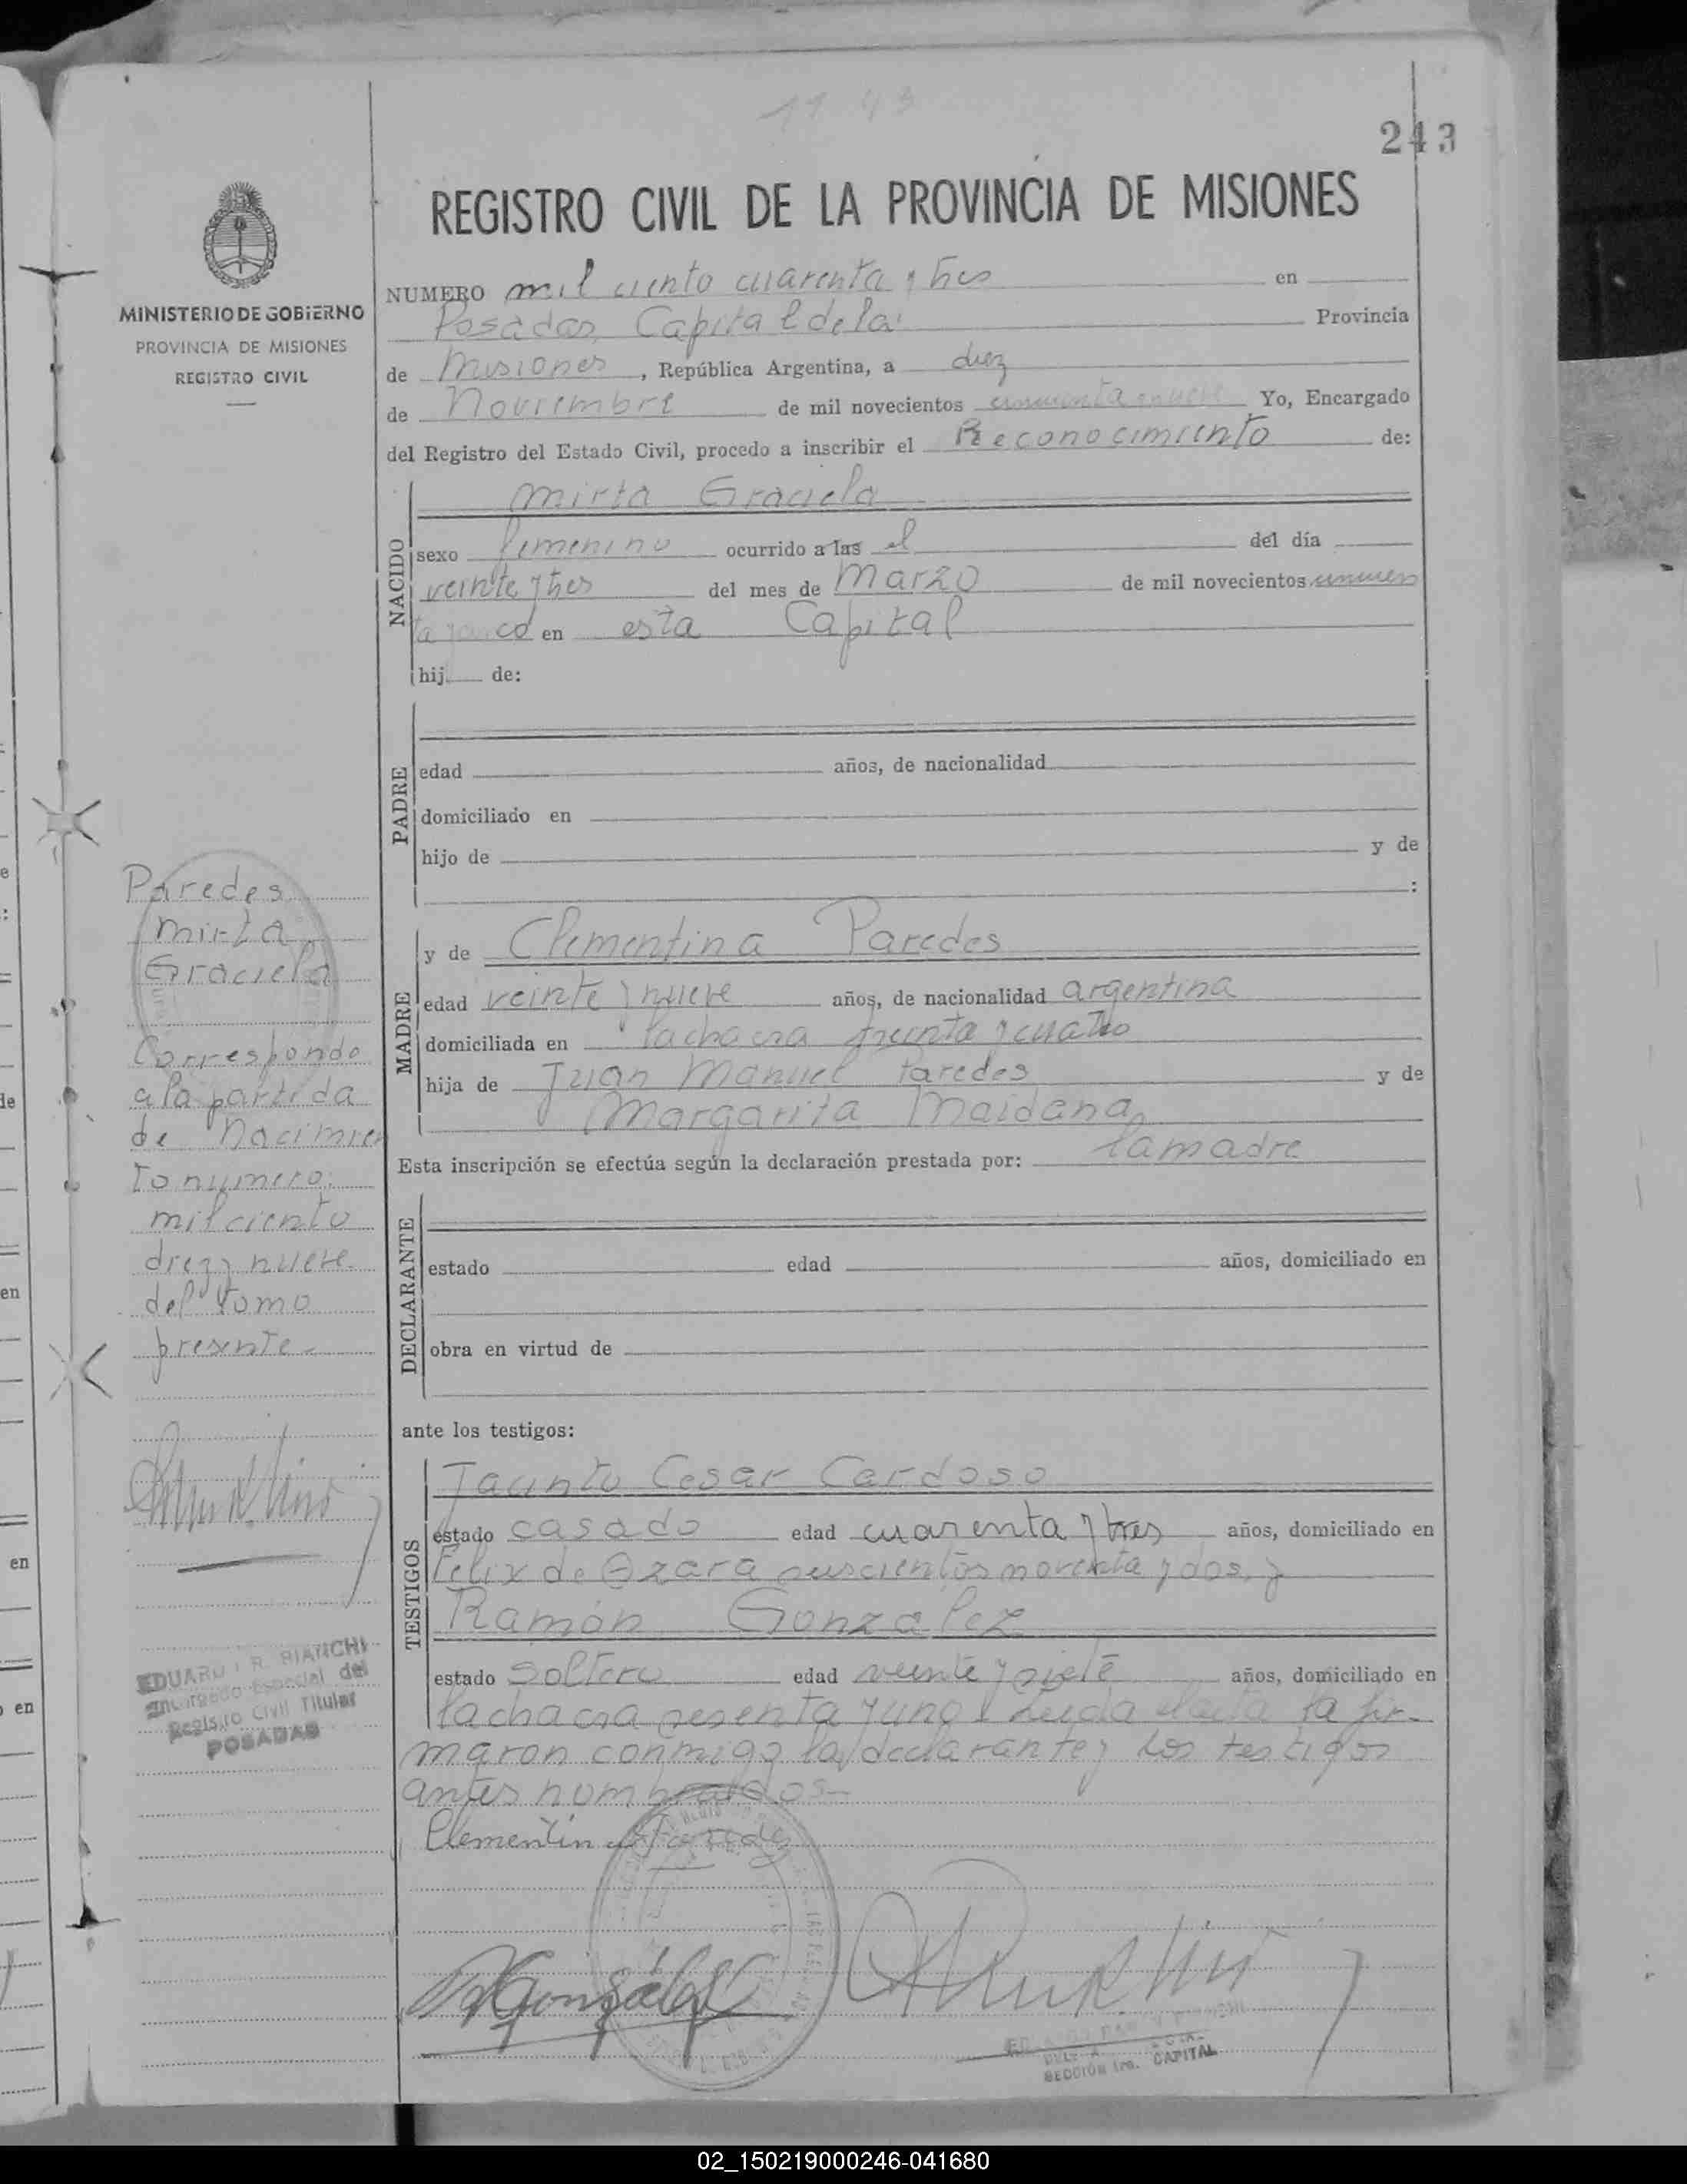 243
REGISTRO CIVIL DE LA PROVINCIA DE MISIONES
MINISTERIO DE GOBIERNO
PROVINCIA DE MISIONES
REGISTRO CIVIL
NUMERO mil ciento cuarenta y tres en
Posadas, Capital de la Provincia
de Misiones, República Argentina, a diez
de Noviembre de mil novecientos cincuenta y nueve Yo, Encargado
del Registro del Estado Civil, procedo a inscribir el Reconocimiento de:
NACIDO
Mirta Graciela
sexo femenino ocurrido a las el del día
veinte y tres del mes de Marzo de mil novecientos cincuen
ta y cinco en esta Capital
hij de:
PADRE
edad años, de nacionalidad
domiciliado en
hijo de y de
:
MADRE
y de Clementina Paredes
edad veinte y nueve años, de nacionalidad argentina
domiciliada en la chacra treinta y cuatro
hija de Juan Manuel Paredes y de
Margarita Maidana
Esta inscripción se efectúa según la declaración prestada por: la madre
DECLARANTE
estado edad años, domiciliado en
obra en virtud de
ante los testigos:
TESTIGOS
Jacinto Cesar Cardoso
estado casado edad cuarenta y tres años, domiciliado en
Felix de Azara seiscientos noventa y dos, y
Ramón Gonzalez
estado soltero edad veinte y siete años, domiciliado en
la chacra sesenta y uno Leida el acta la fir-
maron conmigo la declarante y los testigos
antes nombrados-
Clementina Paredes
RGonzález
SECCION 1ra. CAPITAL
Paredes
Mirta
Graciela
Corresponde
a la partida
de Nacimien
to numero
mil ciento
diez y nueve
del tomo
presente-
EDUARDO R. BIANCHI
Encargado Especial del
Registro Civil Titular
POSADAS
en
en
en
02_150219000246-041680